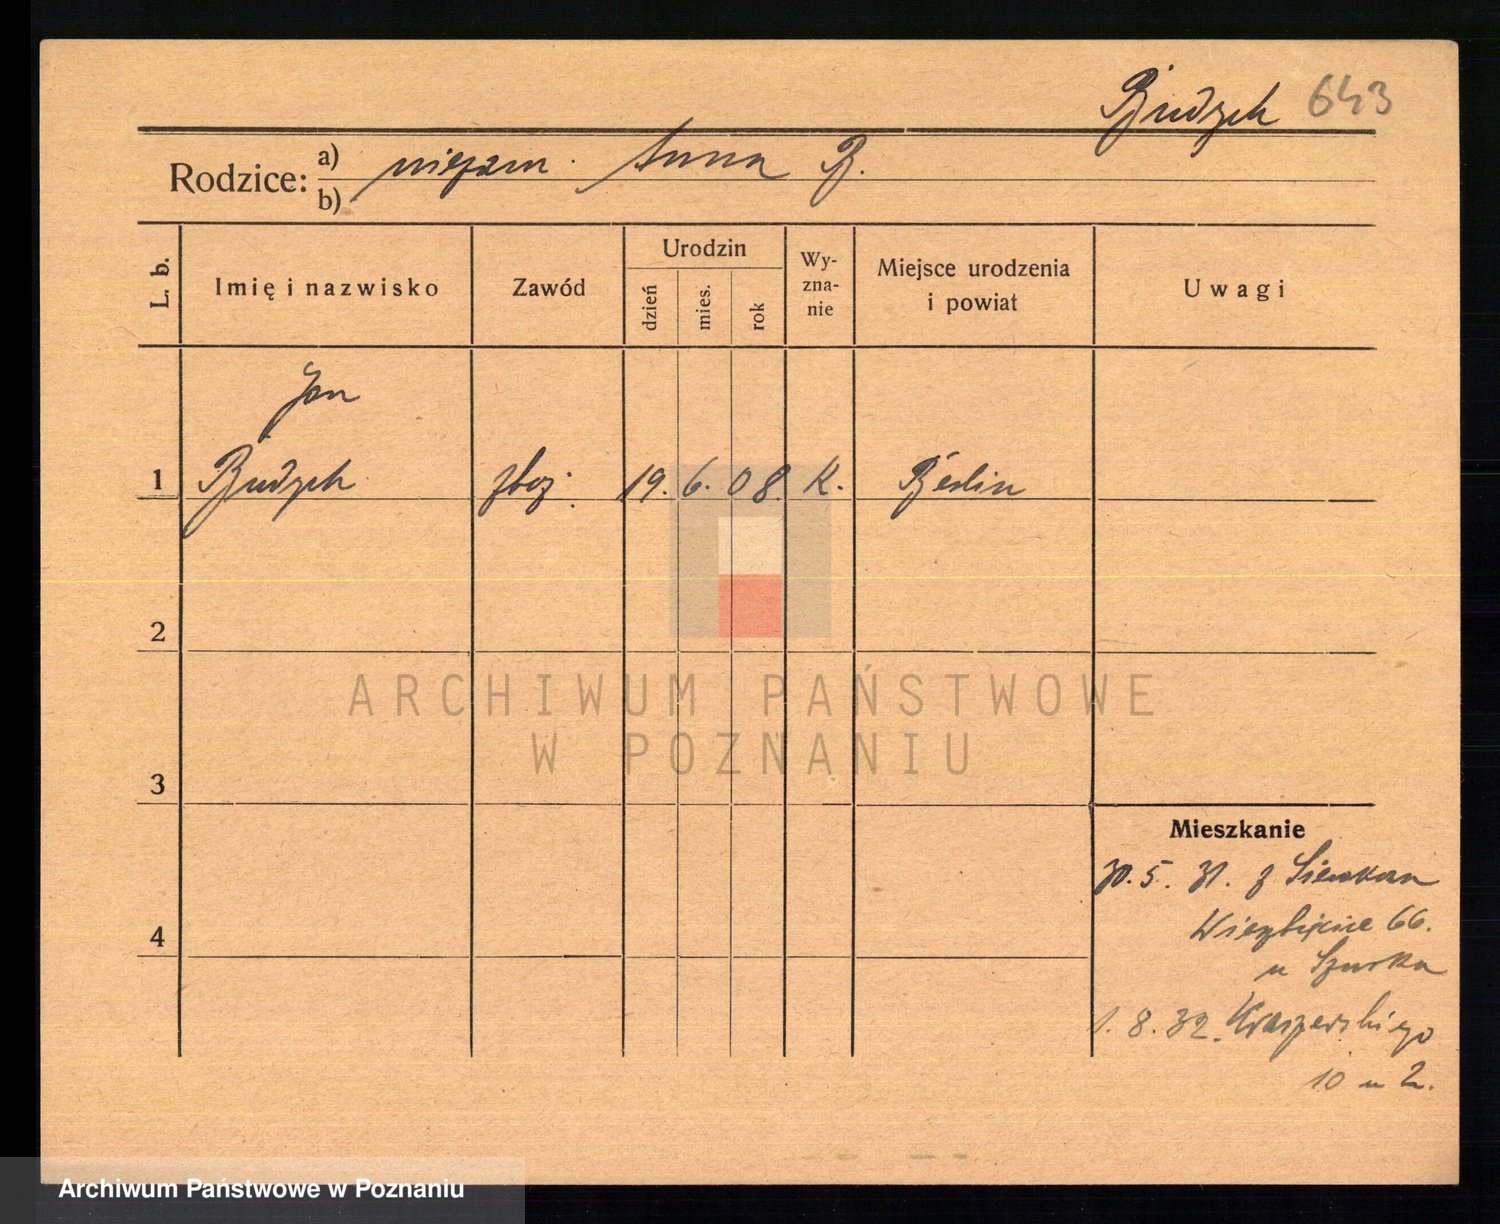 Budzyk 643
Rodzice: a) niezam. Anna B.
b)
L. b.
Imię i nazwisko
Zawód
Urodzin
dzień
mies.
rok
Wy-
zna-
nie
Miejsce urodzenia
i powiat
Uwagi
Jan
1 Budzyk 19. 6. 08. K. Berlin
2
ARCHIWUM PAŃSTWOWE
W POZNANIU
3
Mieszkanie
30. 5. 31. z
66.
4
u
1. 8. 32. Kraszewskiego
10 u 2.
Archiwum Państwowe w Poznaniu